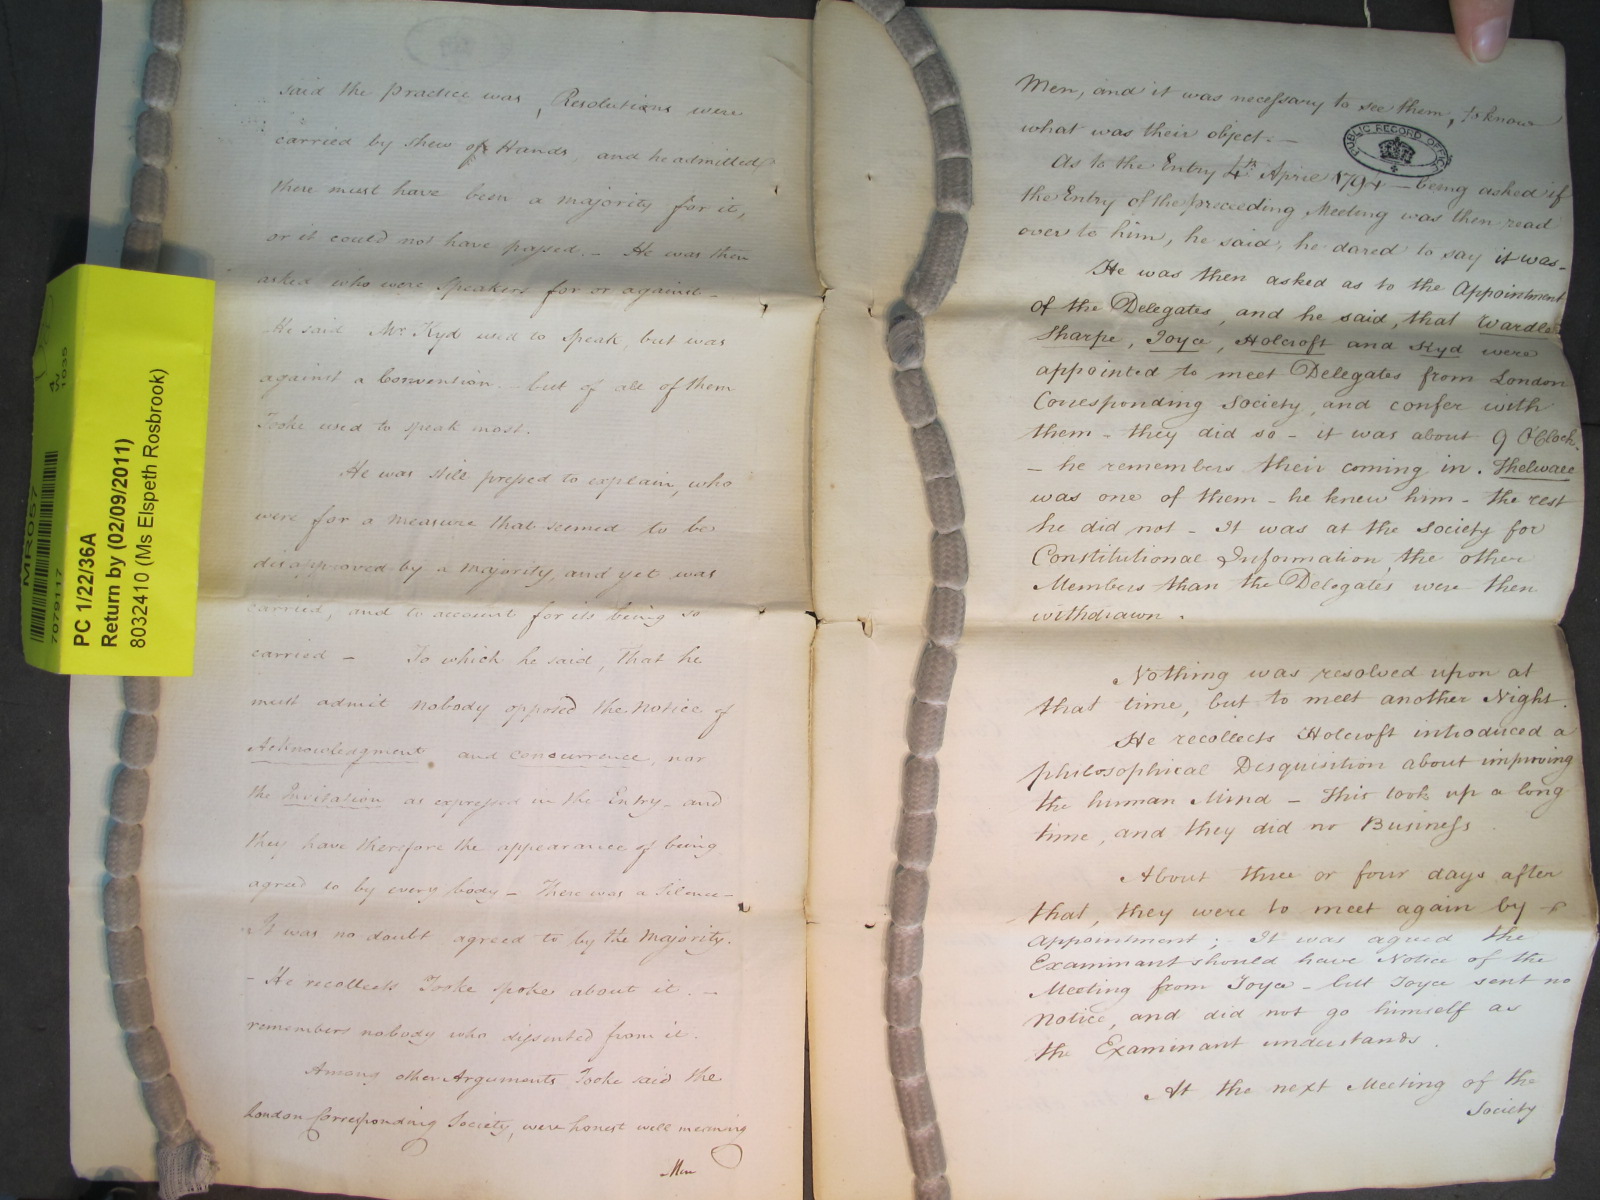 said the practice was, Resolutions were
carried by shew of Hands, and he admitted
there must have been a majority for it,
or it could not have passed. - He was then
asked who were Speakers for or against -
He said Mr. Kyd used to speak, but was
against a Convention - but of all of them
Tooke used to speak most.
He was still pressed to explain, who
were for a measure that seemed to be
disapproved by a majority, and yet was
carried, and to account for its being so
carried - To which he said, That he
must admit nobody opposed the Notice of
Acknowledgment and concurrence, nor
the Invitation as expressed in the Entry - and
they have therefore the appearance of being
agreed to by every body - There was a Silence -
It was no doubt agreed to by the Majority.
- He recollects Tooke spoke about it. -
remembers nobody who dissented from it.
Among other Arguments Tooke said the
London Corresponding Society, were honest well meaning
Men
Men, and it was necessary to see them, to know
what was their object. -
PUBLIC RECORD OFFICE
As to the Entry 4th April 1794 - being asked if
the Entry of the preceeding Meeting was then read
over to him, he said, he dared to say it was -
He was then asked as to the Appointment
of the Delegates, and he said, that Wardle
Sharpe, Joyce, Holcroft and Kyd were
appointed to meet Delegates from London
Corresponding Society, and confer with
them - they did so - it was about 9 O'Clock
- he remembers their coming in. Thelwall
was one of them - he knew him - the rest
he did not - It was at the Society for
Constitutional Information, the other
Members than the Delegates were then
withdrawn.
Nothing was resolved upon at
that time, but to meet another Night.
He recollects Holcroft introduced a
philosophical Disquisition about improving
the human Mind - This took up a long
time, and they did no Business
About three or four days after
that, they were to meet again by
appointment; - It was agreed the
Examinant should have Notice of the
Meeting from Joyce - but Joyce sent no
Notice, and did not go himself as
the Examinant understands.
At the next Meeting of the
Society
MR057
7079117
PC 1/22/36A
Return by (02/09/2011)
8032410 (Ms Elspeth Rosbrook)